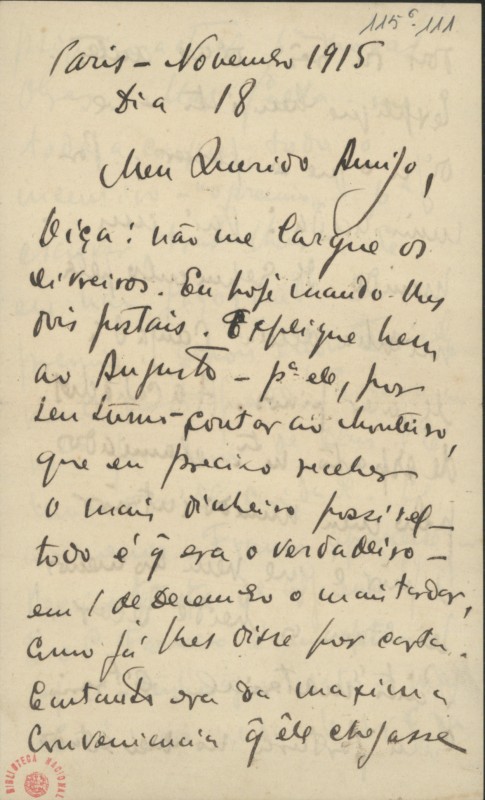 115⁶-111
Paris – Novembro 1915
Dia 18
Meu Querido Amigo,
Oiça: não me largue os
livreiros. Eu hoje mando-lhes
dois postais. Explique bem
ao Augusto – pª ele, por
seu turno contar ao Monteiro,
que eu preciso receber
o mais dinheiro possivel –
todo é q̃ era o verdadeiro –
em 1 de Dezembro o mais tardar,
como já lhes disse por carta.
Contando era da maxima
Conveniencia q̃ êle chegasse
BIBLIOTECA NACIONAL